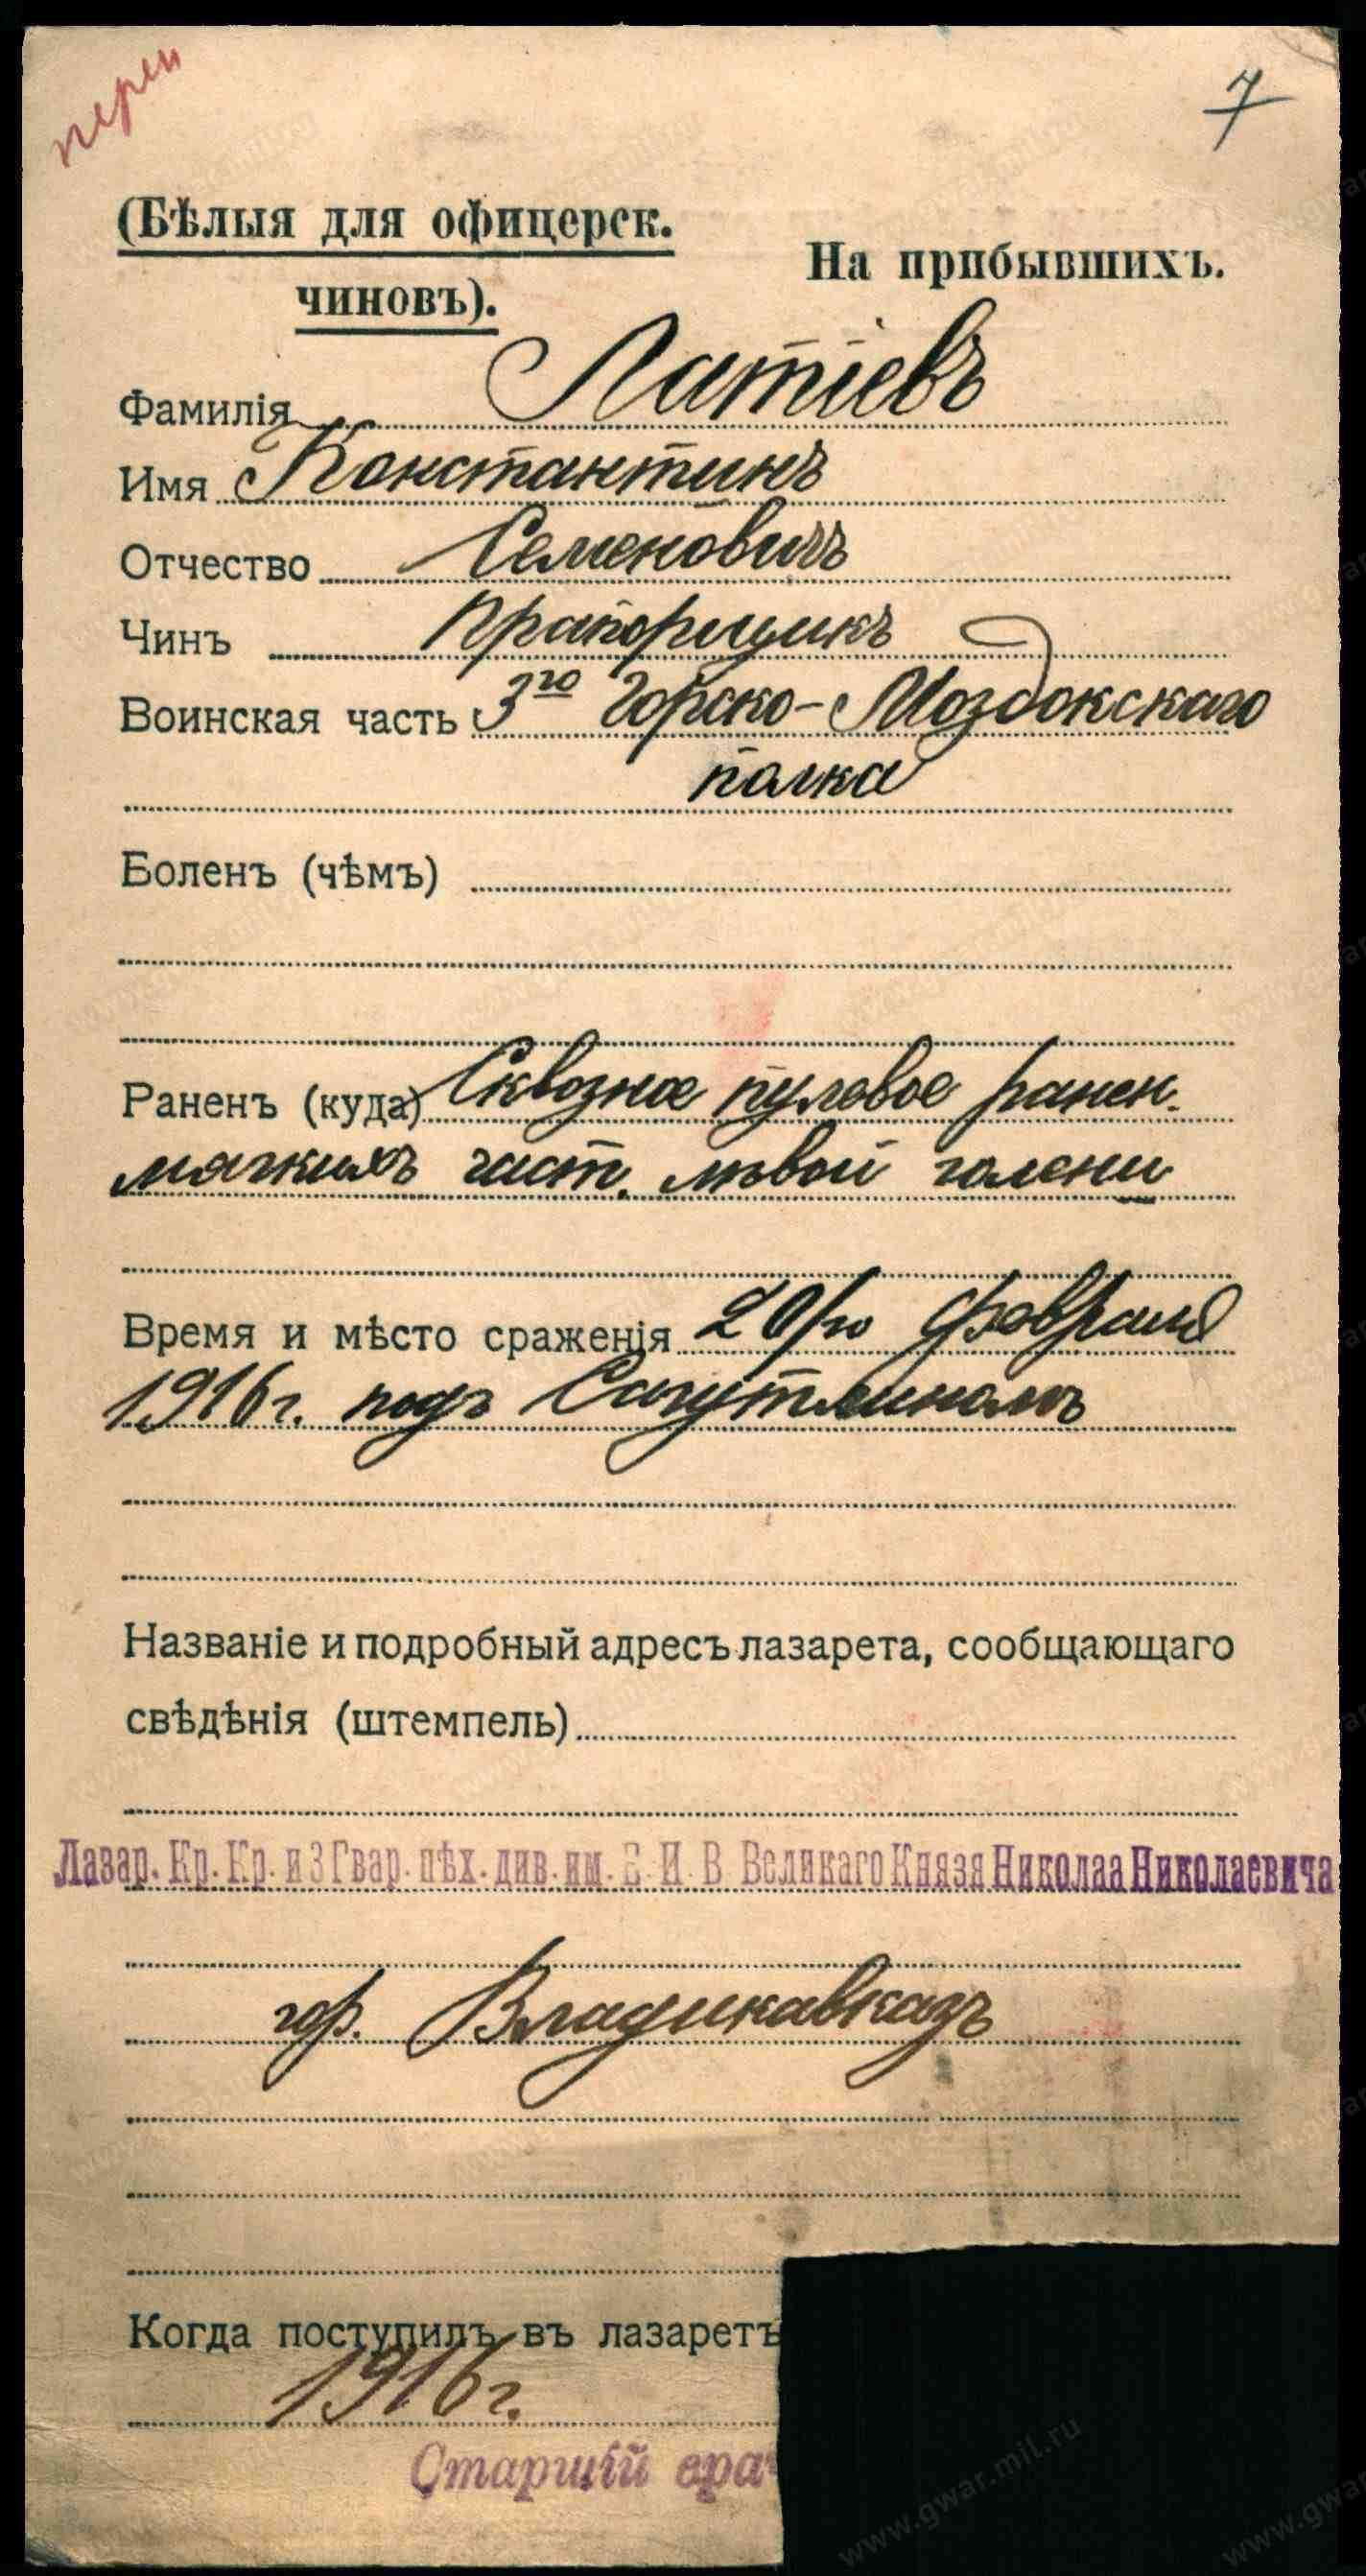 7
(Бѣлыя для офицерск.
чиновъ).
На прибывшихъ.
Фамилія Латіевъ
Имя Константинъ
Отчество Семеновичъ
Чинъ Прапорщикъ
Воинская часть 3го Горско-Моздокскаго
полка
Боленъ (чѣмъ)
Раненъ (куда) Сквозное пулевое ранен.
мягкихъ част. лѣвой голени
Время и мѣсто сраженія 20/го февраля
1916 г. подъ
Названіе и подробный адресъ лазарета, сообщающаго
свѣдѣнія (штемпель)
Лазар. Кр. Кр. и 3 Гвар. пѣх. див. им. Е. И. В. Великаго Князя Николая Николаевича
гор. Владикавказъ
Когда поступилъ въ лазаретъ
1916 г.
Старшій врач
www.gwar.mil.ru